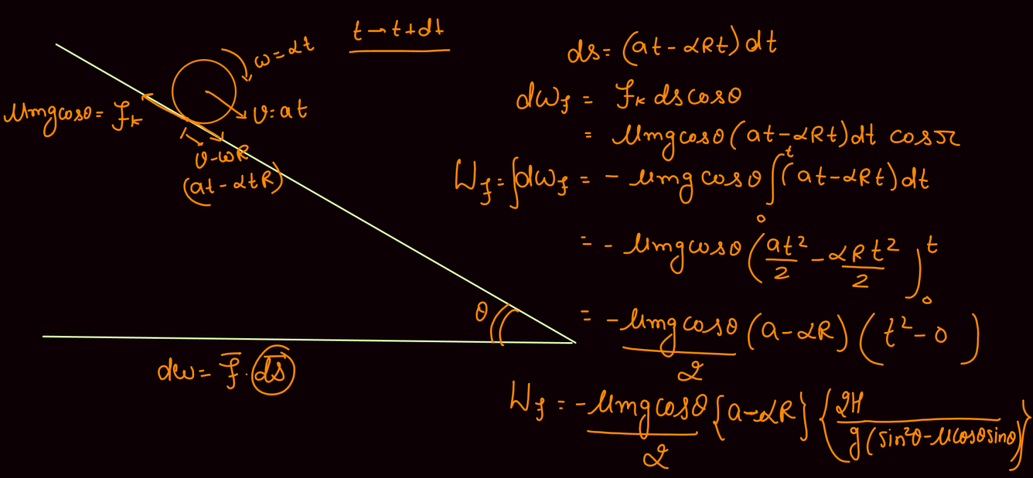 t → t+dt
ω = αt
μmgcosθ = fₖ
v = at
v-ωR
(at - αtR)
θ
dw = f̅ · d̅s̅
ds = (at - αRt) dt
dw_f = fₖ ds cosθ
= μmgcosθ (at - αRt) dt cosπ
W_f = ∫dw_f = - μmg cosθ ∫₀ᵗ (at - αRt) dt
= - μmgcosθ (at²/2 - αRt²/2)₀ᵗ
= -μmgcosθ/2 (a - αR) (t² - 0)
W_f = -μmgcosθ/2 {a - αR} {2H/g(sin²θ - μcosθsinθ)}